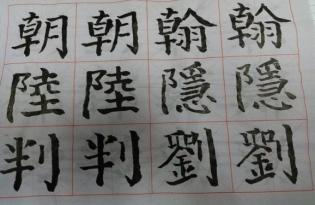 朝朝翰翰
陸陸隱隱
判判劉劉